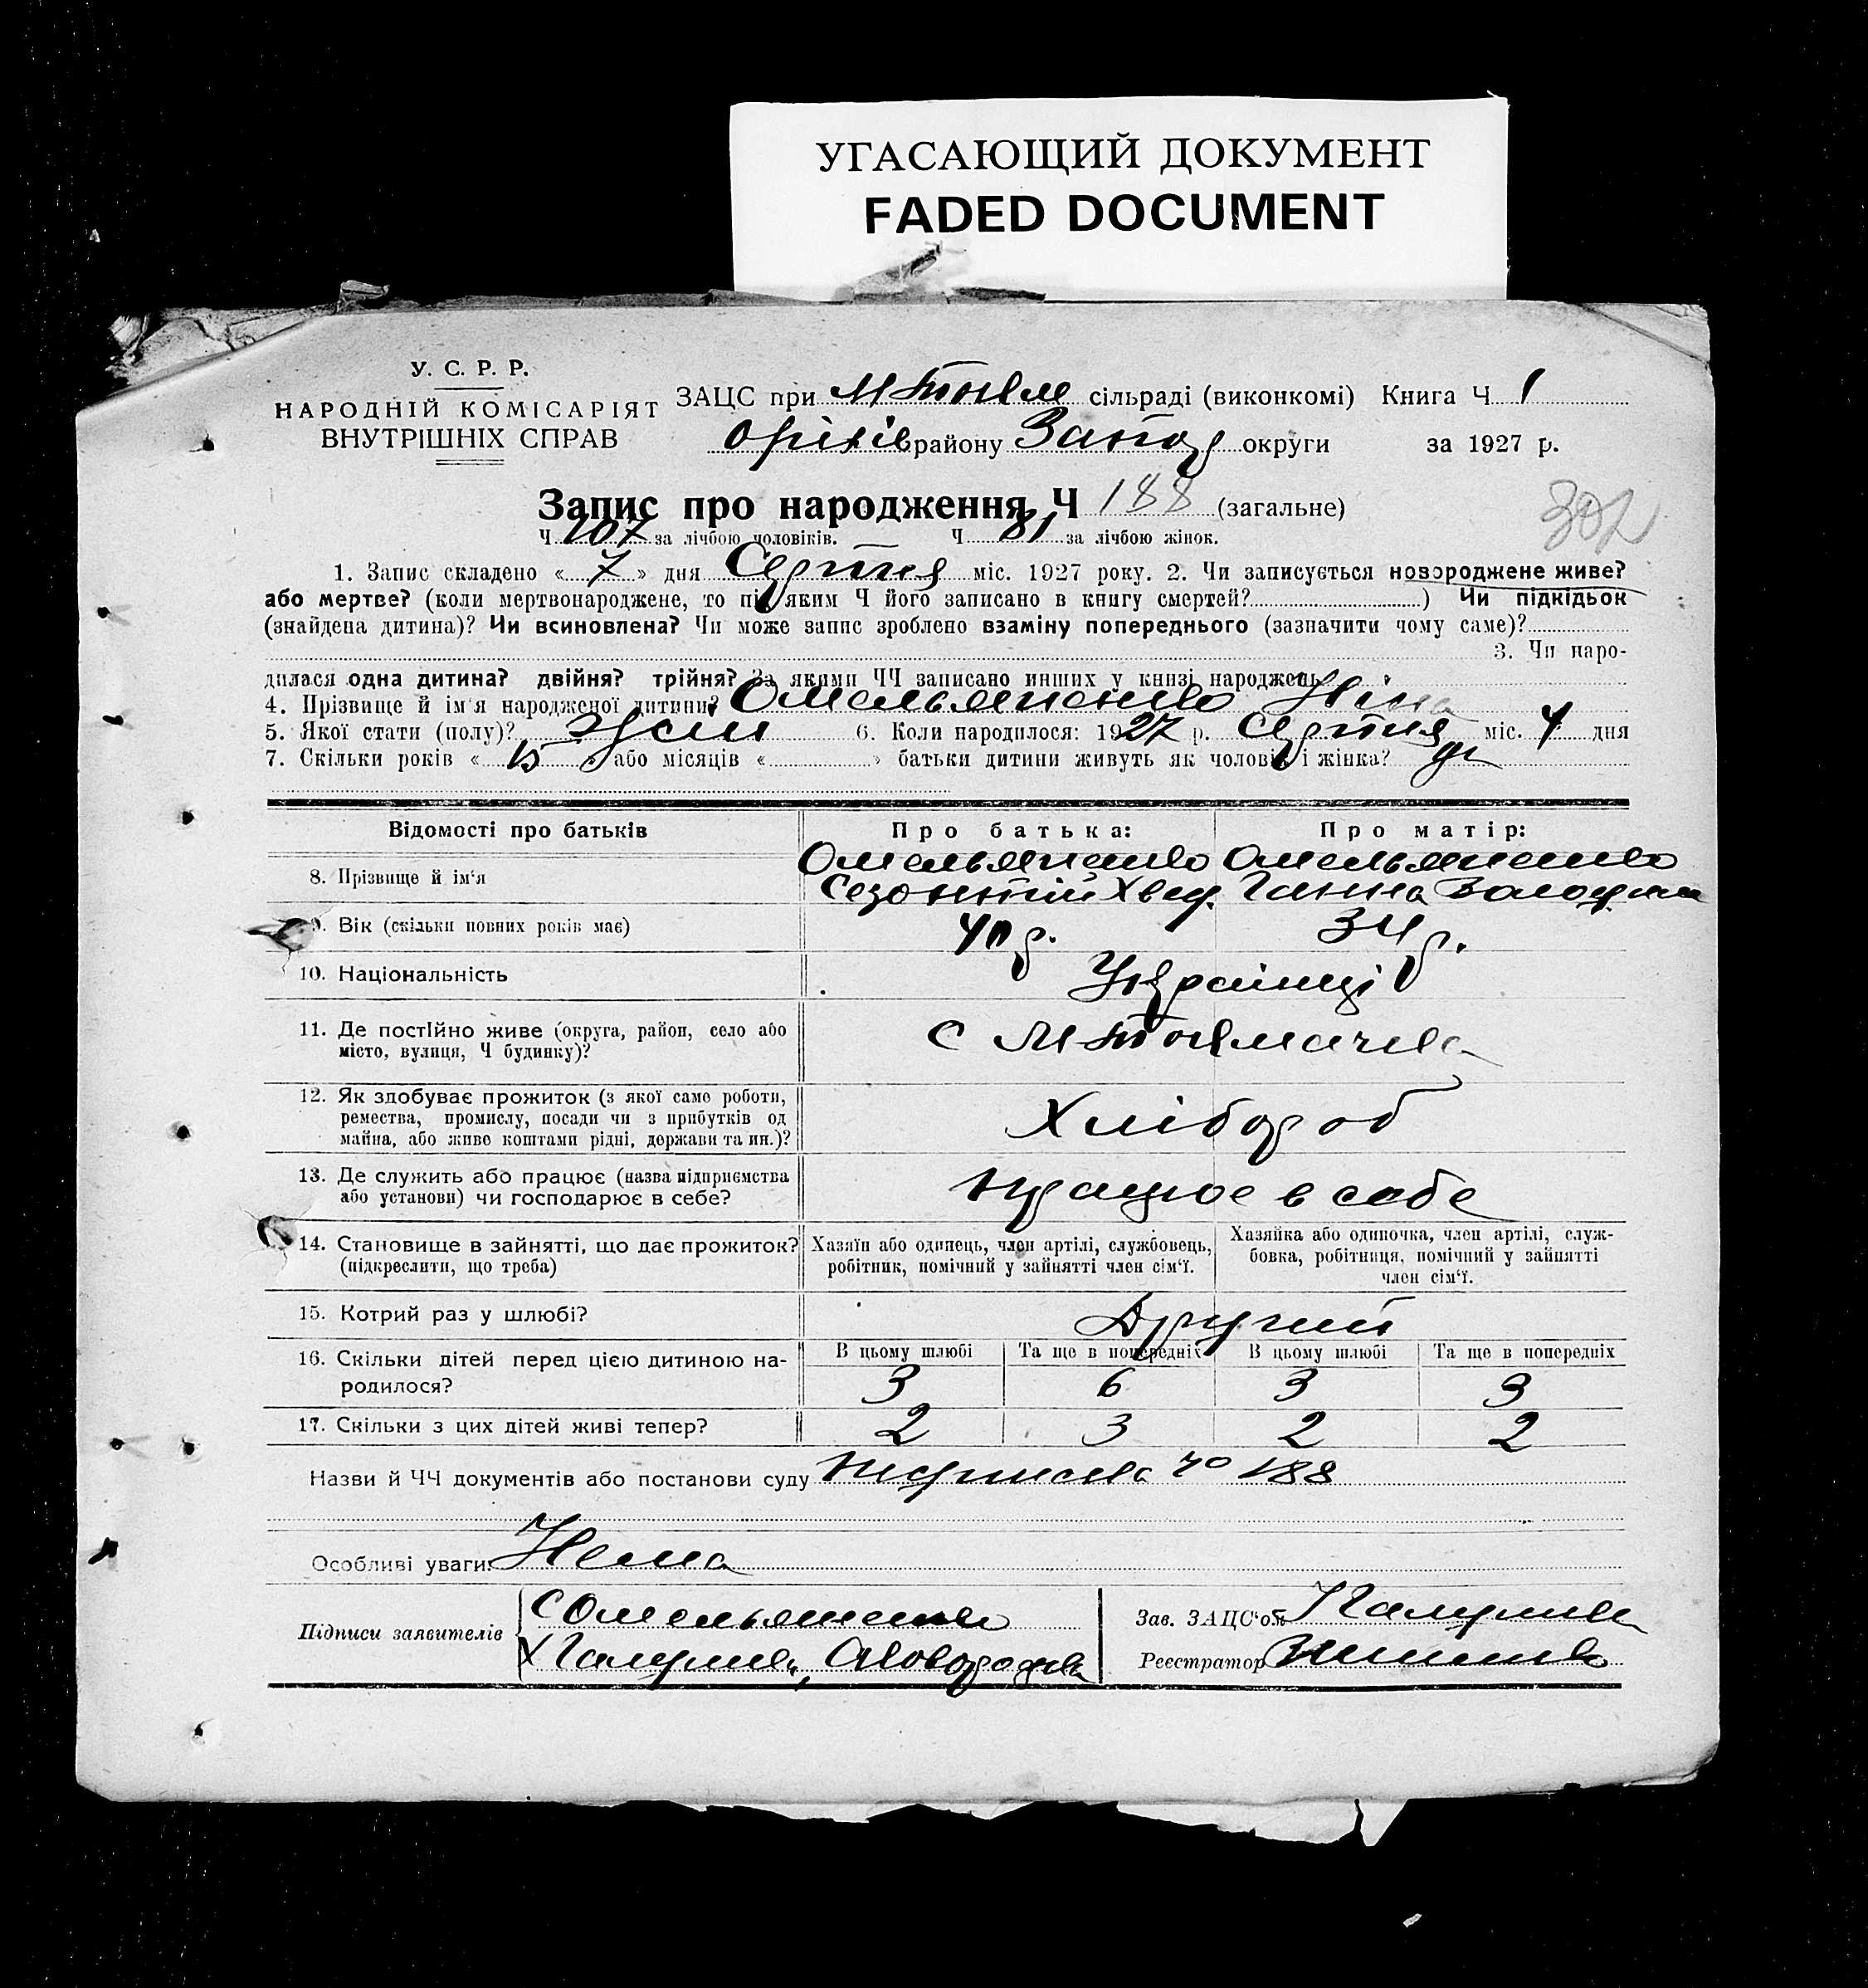 УГАСАЮЩИЙ ДОКУМЕНТ
FADED DOCUMENT
У. С. Р. Р.
НАРОДНІЙ КОМІСАРІЯТ
ВНУТРІШНІХ СПРАВ
ЗАЦС при М Токм сільраді (виконкомі) Книга Ч 1
Оріхів району Запор округи за 1927 р.
Запис про народження Ч 188 (загальне)
302
Ч 107 за лічбою чоловіків. Ч 81 за лічбою жінок.
1. Запис складено « 7 » дня Серпня міс. 1927 року. 2. Чи записується новороджене живе?
або мертве? (коли мертвонароджене, то під яким Ч його записано в книгу смертей? ) Чи підкідьок
(знайдена дитина)? Чи всиновлена? Чи може запис зроблено взаміну попереднього (зазначити чому саме)?
3. Чи наро-
дилася одна дитина? двійня? трійня? За якими ЧЧ записано инших у книзі народжень
4. Прізвище й ім'я народженої дитини? Омельяненко Ніна
5. Якої стати (полу)? Жсій 6. Коли народилося: 1927 р. Серпня міс. 4 дня
7. Скільки років « 5 » або місяців « » батьки дитини живуть як чоловік і жінка?
Відомості про батьків
Про батька: Про матір:
8. Прізвище й ім'я Омельяненко Омельяненко
Созонтій Хвед. Ганна Володим
9. Вік (скільки повних років має) 40 р. 34 р.
10. Національність Українці
11. Де постійно живе (округа, район, село або
місто, вулиця, Ч будинку)? с М Токмачка
12. Як здобуває прожиток (з якої само роботи,
ремества, промислу, посади чи з прибутків од
майна, або живе коштами рідні, держави та ин.)? Хлібороб
13. Де служить або працює (назва підприємства
або установи) чи господарює в себе? працює в себе
14. Становище в зайнятті, що дає прожиток?
(підкреслити, що треба)
Хазяїн або одинець, член артілі, службовець,
робітник, помічний у зайнятті член сім'ї.
Хазяйка або одиночка, член артілі, служ-
бовка, робітниця, помічний у зайнятті
член сім'ї.
15. Котрий раз у шлюбі? Другий
16. Скільки дітей перед цією дитиною на-
родилося?
В цьому шлюбі Та ще в попередніх В цьому шлюбі Та ще в попередніх
3 6 3 3
17. Скільки з цих дітей живі тепер? 2 3 2 2
Назви й ЧЧ документів або постанови суду 188
Особливі уваги: Нема
Підписи заявителів С Омельяненко
Зав. ЗАЦС'ом
Реєстратор